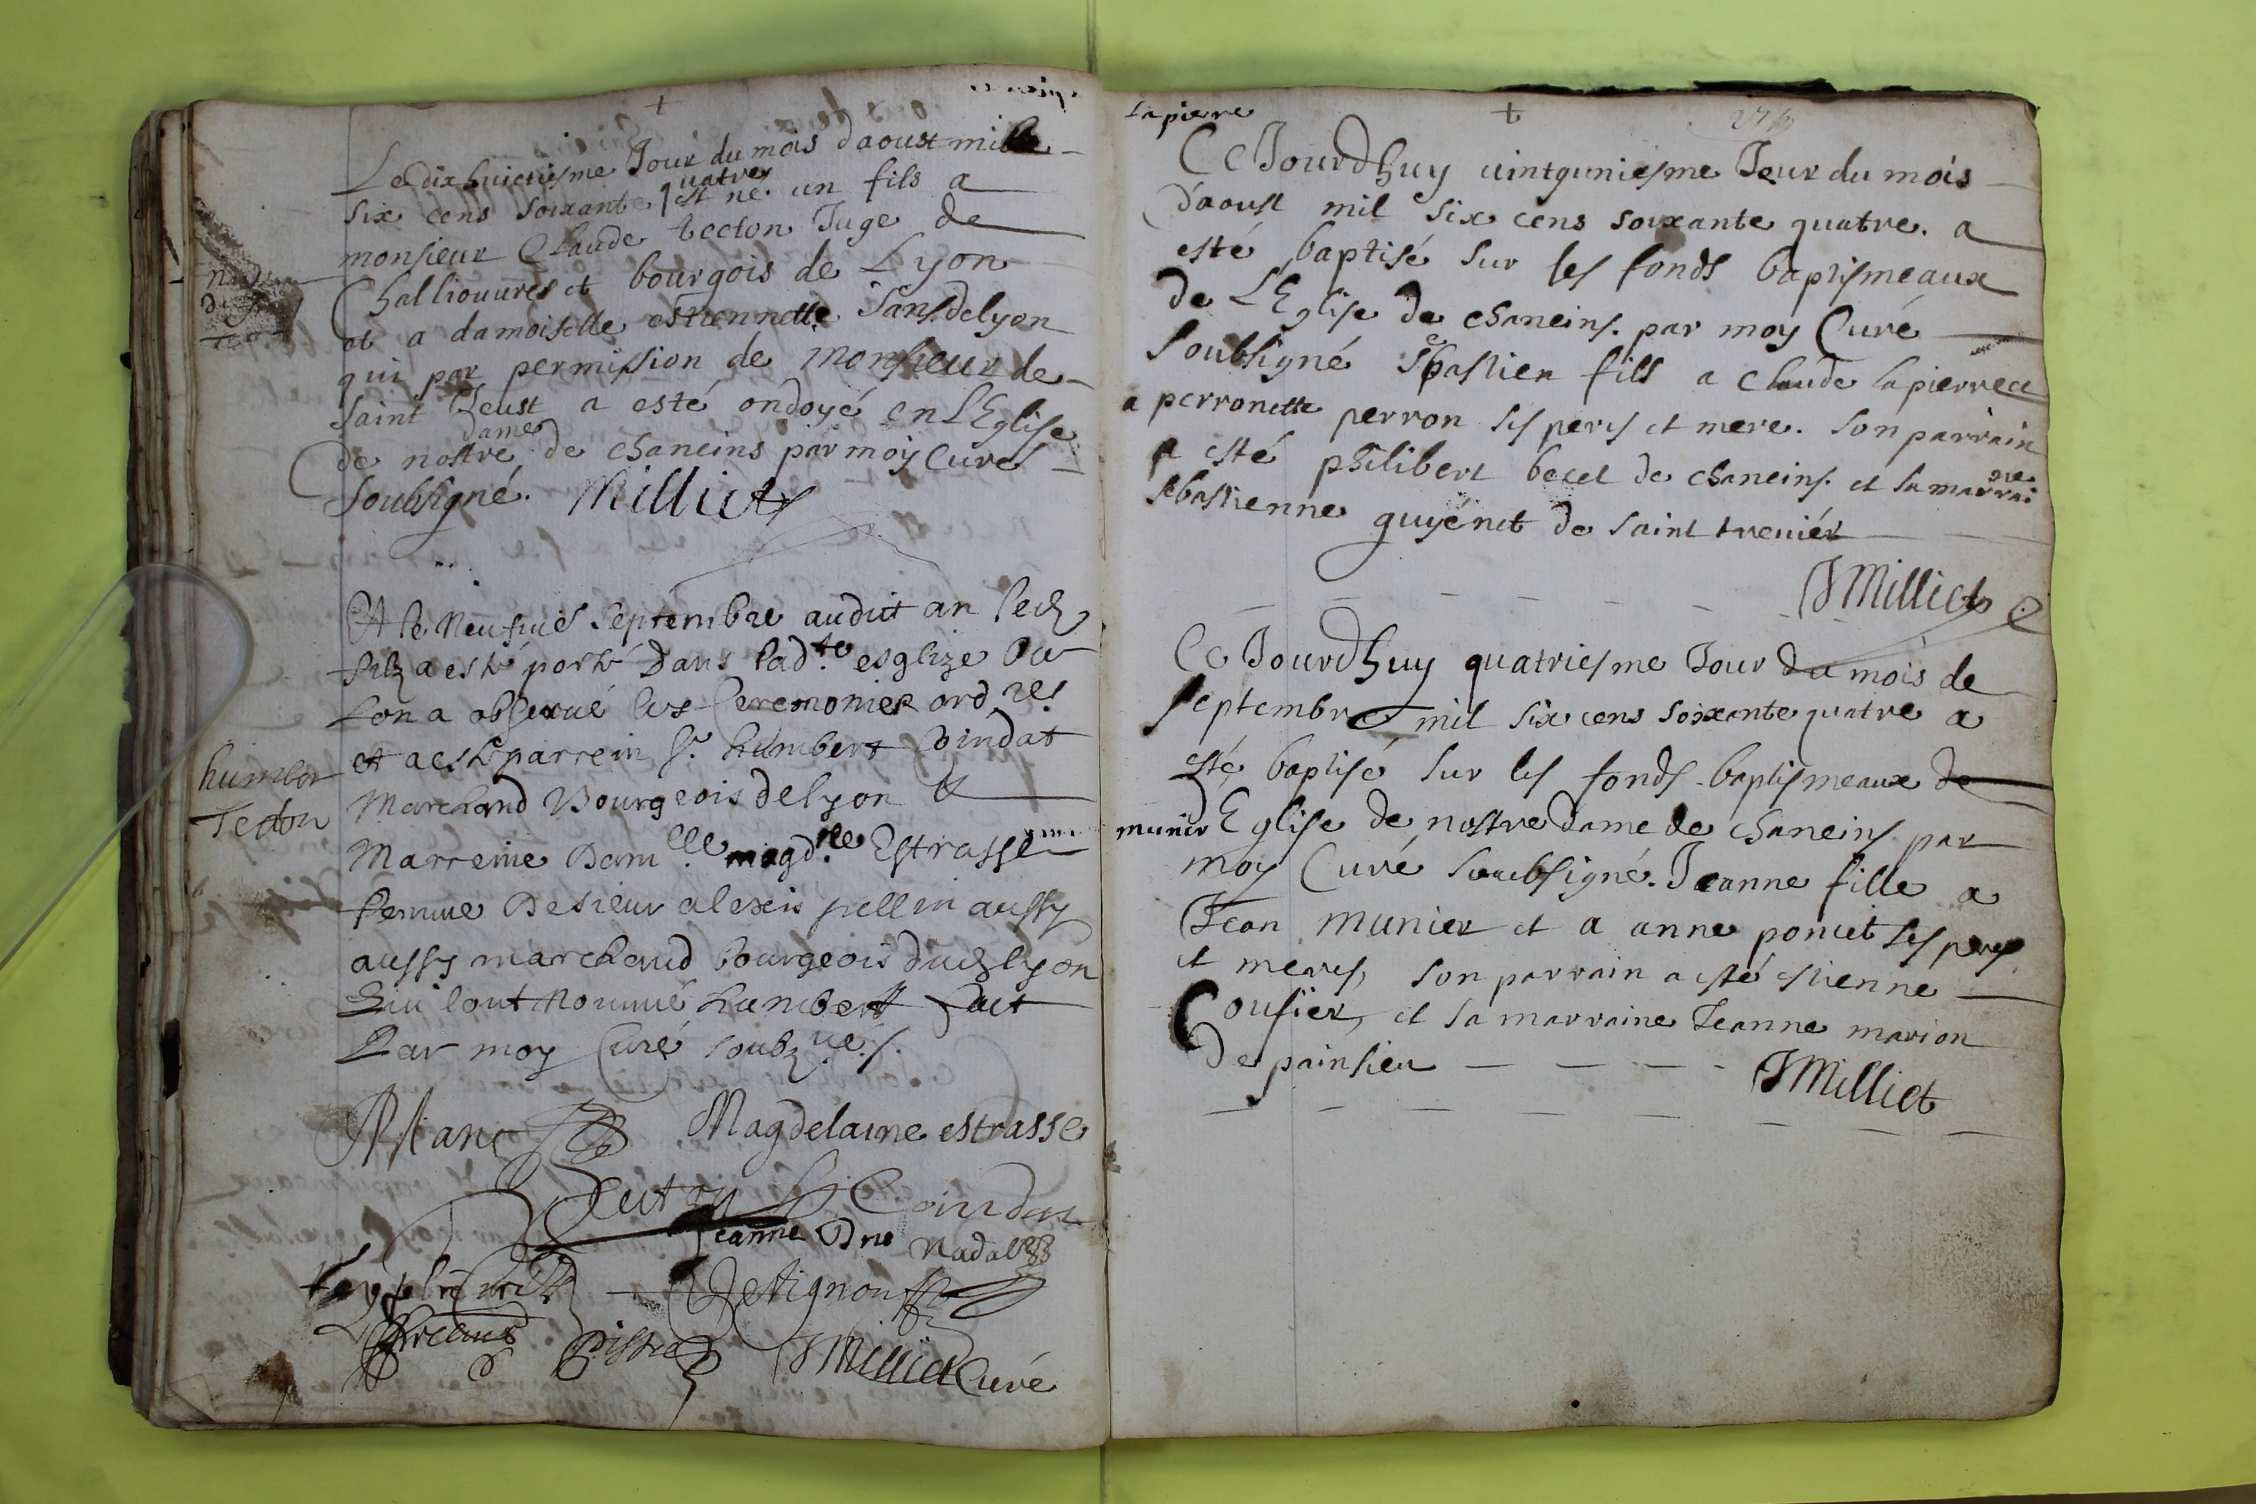 Le dixhuictiesme Jour du mois daoust mille
six cens soixante quatre est né un fils a
monsieur Claude tecton Juge de
Challiouvres et bourgois de Lyon
et a damoiselle estiennette Jans delyon
qui par permission de monsieur de
saint Jeust a esté ondoyé en L'Eglise
de nostre dame de chaneins par moy Curé
soubsigné. Milliet
Et le neufvies septembre audit an led
filz a esté porté dans lad.te esglize ou
Lon a observé les Ceremonies ord.res
et a esté parrein Sr humbert Coindat
Marchand Bourgeois de lyon et
humber
Tecton
Marreine Dam.lle magd.ne Estrasse
femme de sieur alexis pellin aussy
aussy marchand bourgeois dud lyon
Qui lont nommé humbert fait
Par moy Curé soubz.né.
Magdelaine estrasse
Coindat
Jeanne
Nadal
JMilliet Curé
Lapierre
+
Ce Jourdhuy vintguniesme Jour du mois
daoust mil six cens soixante quatre. a
esté baptisé sur les fonds baptismeaux
de L'Eglise de chaneins. par moy Curé
soubsigné sebastien fils a claude lapierre et
a perronette perron ses peres et mere. son parrain
a esté philibert becet de chaneins. et sa marraine
sebastienne guyénet de saint trevier
JMilliet
Ce Jourdhuy quatriesme Jour du mois de
septembre mil six cens soixante quatre a
esté baptisé sur les fonds baptismeaux de
munier
L'Eglise de nostre dame de chaneins par
moy Curé soubsigné. Jeanne fille a
Jean munier et a anne poncet ses peres
et meres, son parrain a esté estienne
Cousier, et sa marraine Jeanne marion
de painsieu
JMilliet